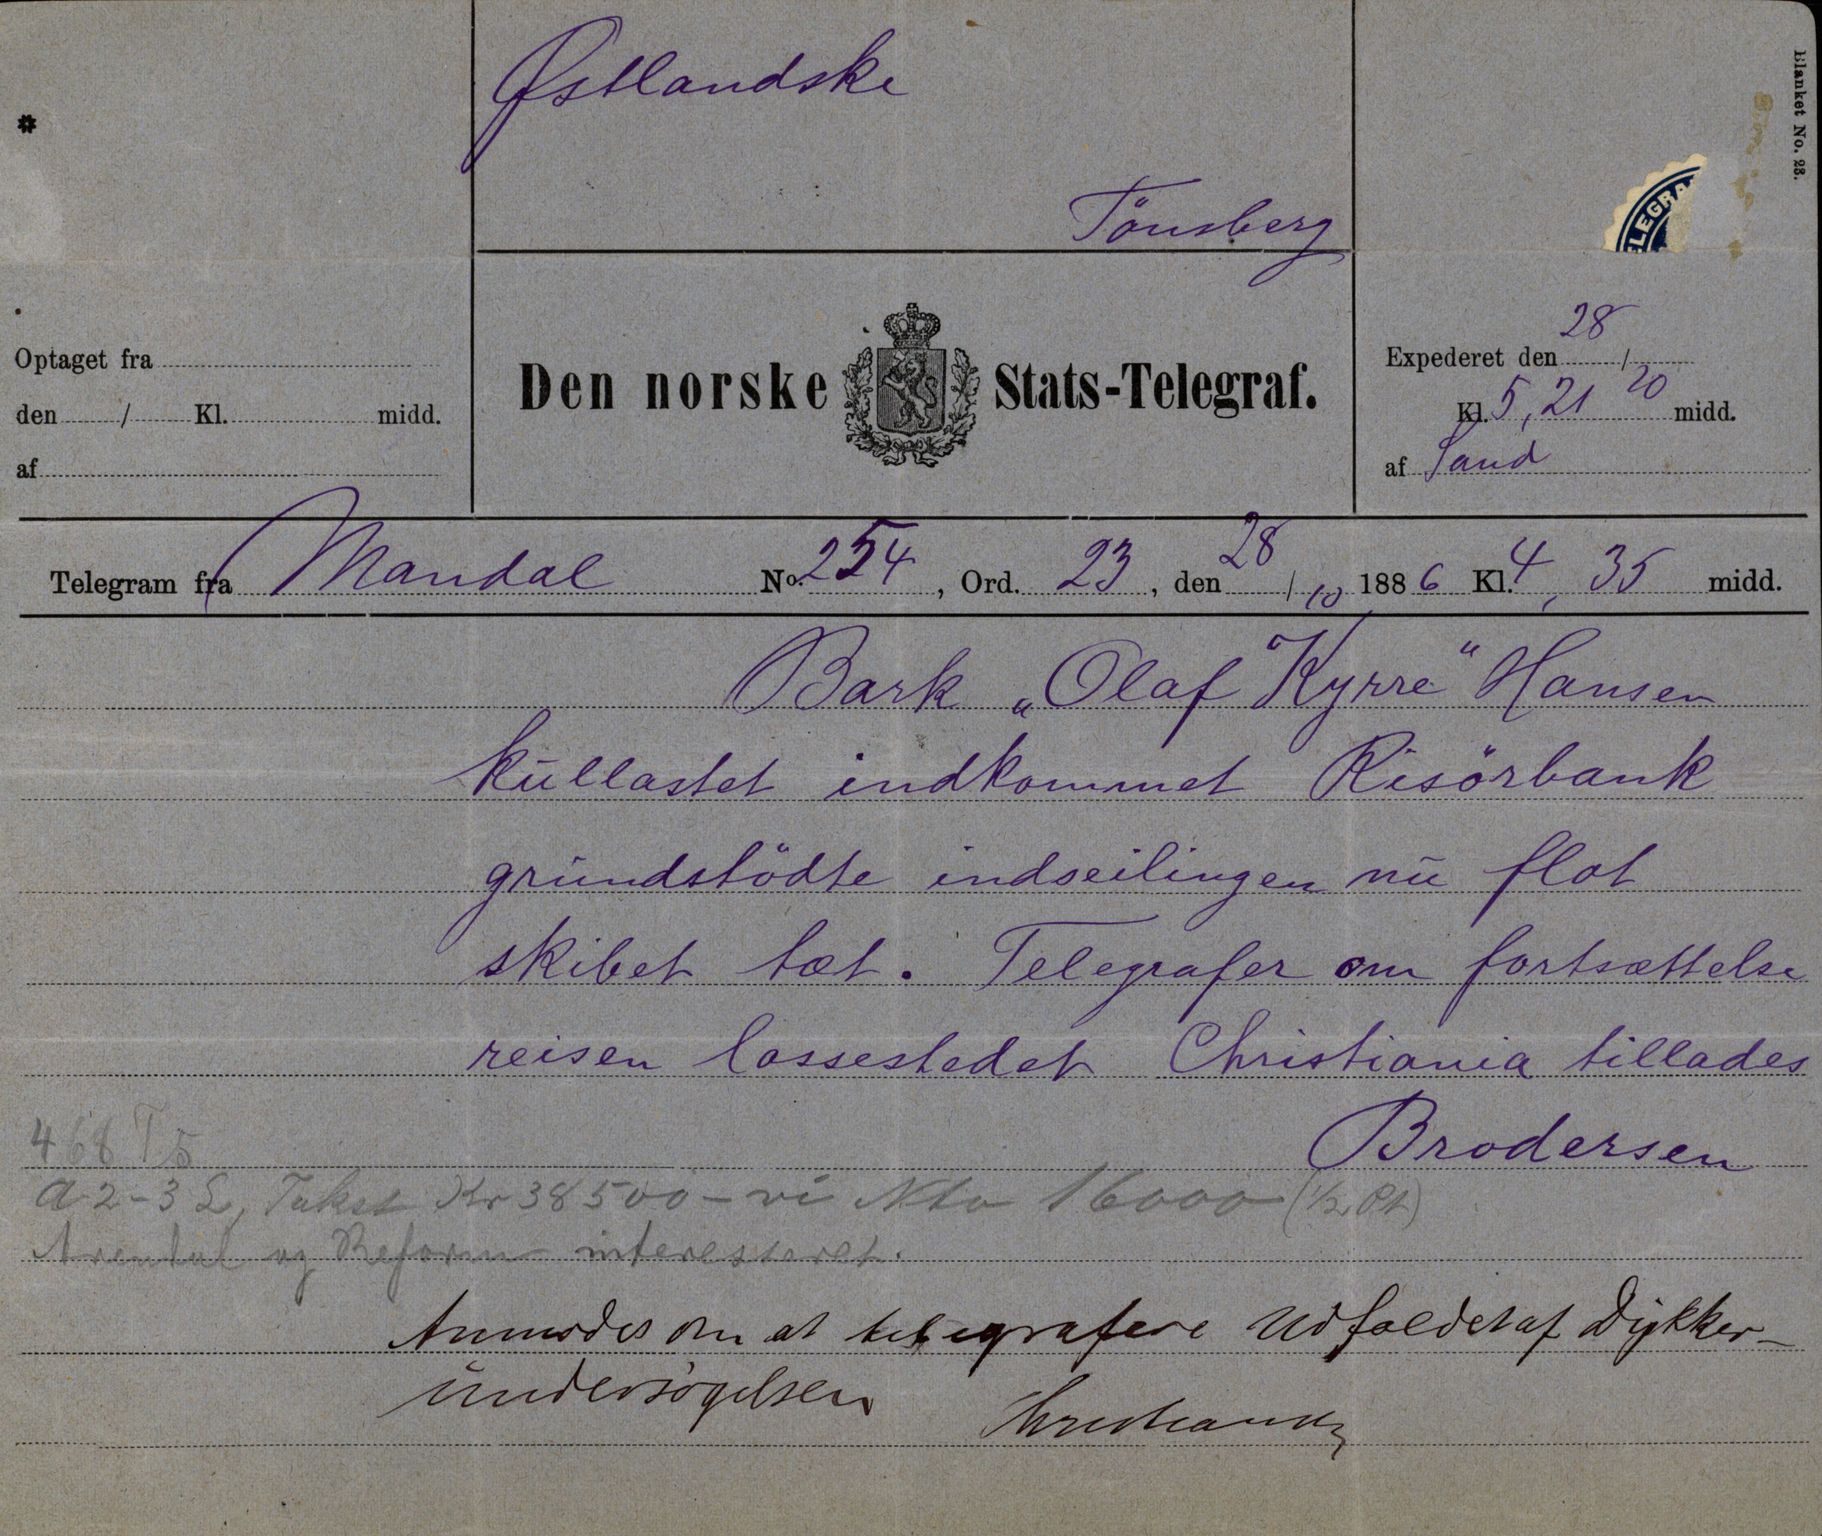 Østlandske
Tönsberg
Blanket No. 23.
TELEGRA
Optaget fra
den / Kl. midd.
af
Den norske Stats-Telegraf.
Expederet den 28/
Kl. 5,21 20 midd.
af Sand
Telegram fra Mandal No. 254, Ord. 23, den 28/10 1886 Kl. 4,35 midd.
Bark „Olaf Kyrre" Hansen
kullastet indkommet Risörbank
grundstödte indseilingen nu flot
skibet tæt. Telegrafer om fortsættelse
reisen lossestedet Christiania tillades
Brodersen
468 T 5
A 2-3 L, Takst Kr 38500 - vi Nto 16000 (1/2 Pt)
Arendal og Reform interesseret.
Anmodes om at telegrafere Udfaldet af Dykker-
undersøgelsen